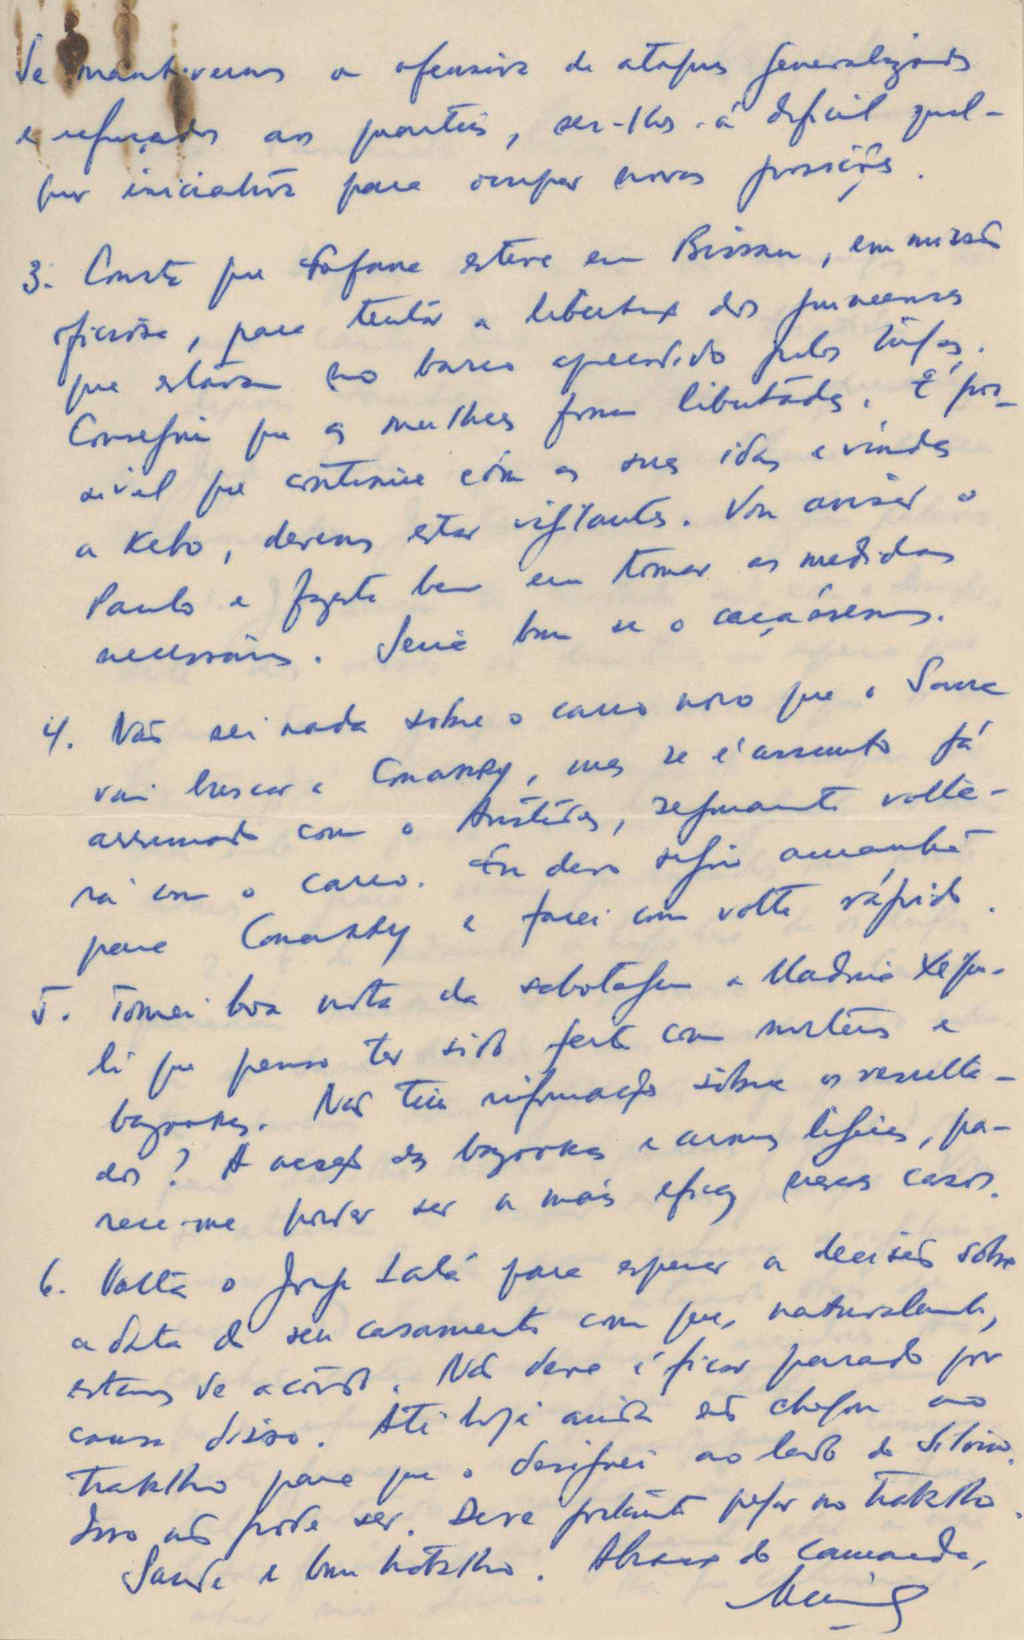 Se mantivermos a ofensiva de ataques generalizados
e reforçados aos quarteis, ser-lhes-á dificil qual-
quer iniciativa para ocupar novas posições.
3. Consta que Fofana esteve em Bissau, em missão
oficiosa, para tentar a libertação dos guineenses
que estavam no barco apreendido pelos tugas.
Conseguiu que as mulheres fossem libertadas. É pos-
sivel que continue com as suas idas e vindas
a Kebo, devemos estar vigilantes. Vou avisar o
Paulo e fizeste bem em tomar as medidas
necessárias. Seria bom se o caçássemos.
4. Não sei nada sobre o carro novo que o Sousa
vai buscar a Conakry, mas se é assunto já
arrumado com o Aristides, seguramente volta-
rá com o carro. Eu devo seguir amanhã
para Conakry e farei com volte rápido.
5. Tomei boa nota da sabotagem a Madina Xequi-
li que penso ter sido feita com morteiros e
bazookas. Não tens informação sobre os resulta-
dos? A acção das bazookas e armas ligeiras, pa-
rece-me poder ser a mais eficaz nesses casos.
6. Volta o Jorge Lalá para esperar a decisão sobre
a data do seu casamento com que, naturalmente,
estamos de acordo. Não deve é ficar parado por
causa disso. Até hoje ainda não chegou ao
trabalho para que o designei ao lado do Silvino.
Isso não pode ser. Deve portanto pegar no trabalho.
Saude e bom trabalho. Abraço do camarada,